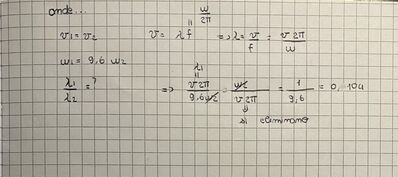 onde...
v₁ = v₂ v = λ f = ω/2π => λ = v/f = v 2π/ω
ω₁ = 9,6 ω₂
λ₁/λ₂ = ? => λ₁ = v 2π/9,6 ω₂ · ω₂/v 2π = 1/9,6 = 0,104
si eliminano